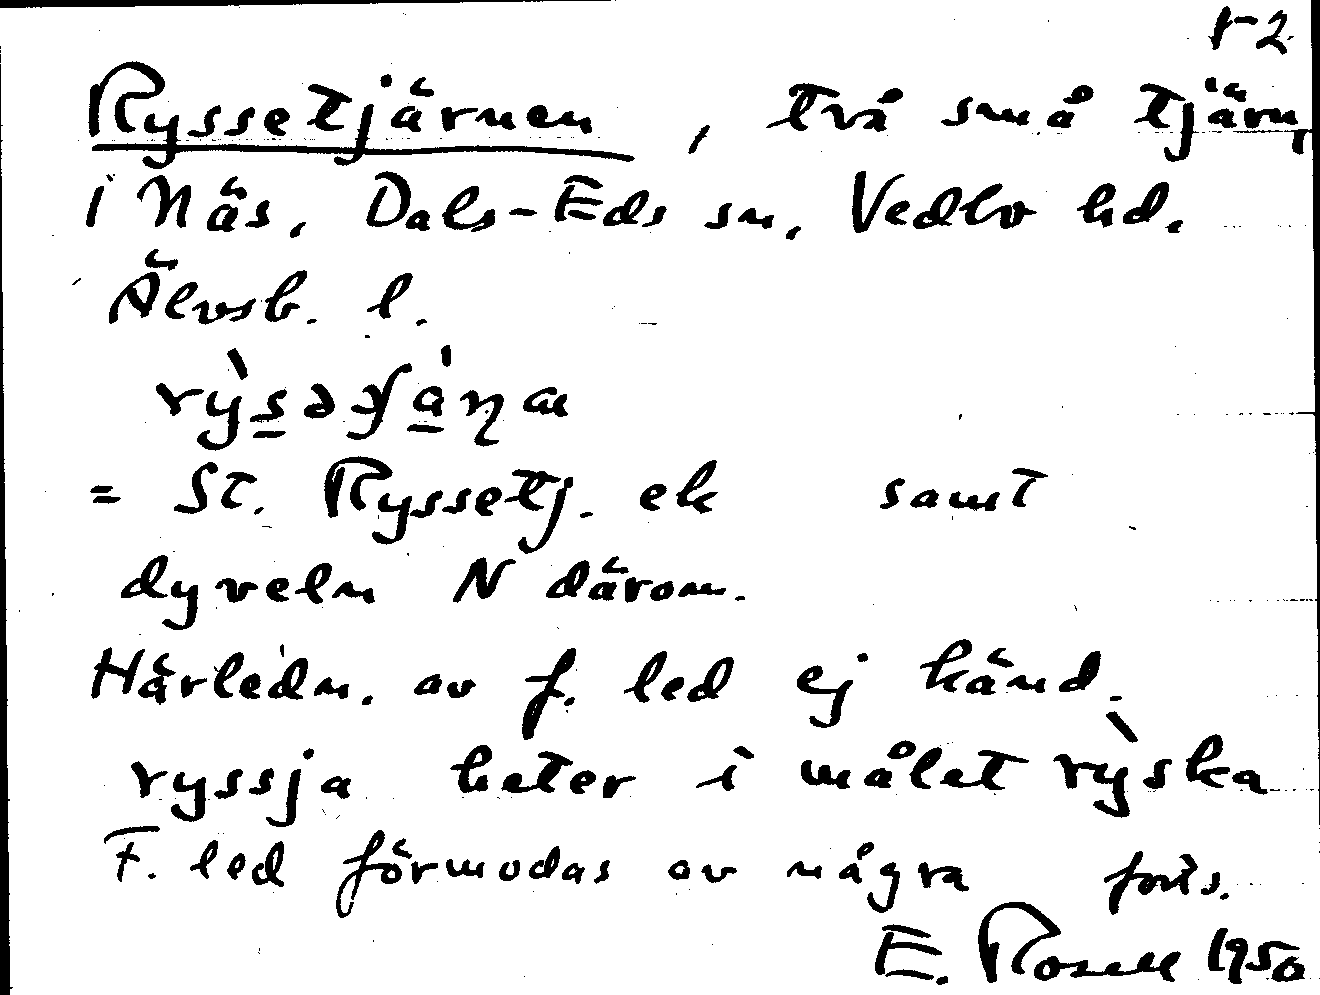 1-2
Ryssetjärnen, två små tjärn,
i Näs, Dals-Eds sn, Vedbo hd.
Älvsb. l.
= St. Ryssetj. ek samt
dyveln N därom.
Härledn. av f. led ej känd.
ryssja heter i målet rỳska
F. led förmodas av några forts.
E. Rosell 1950